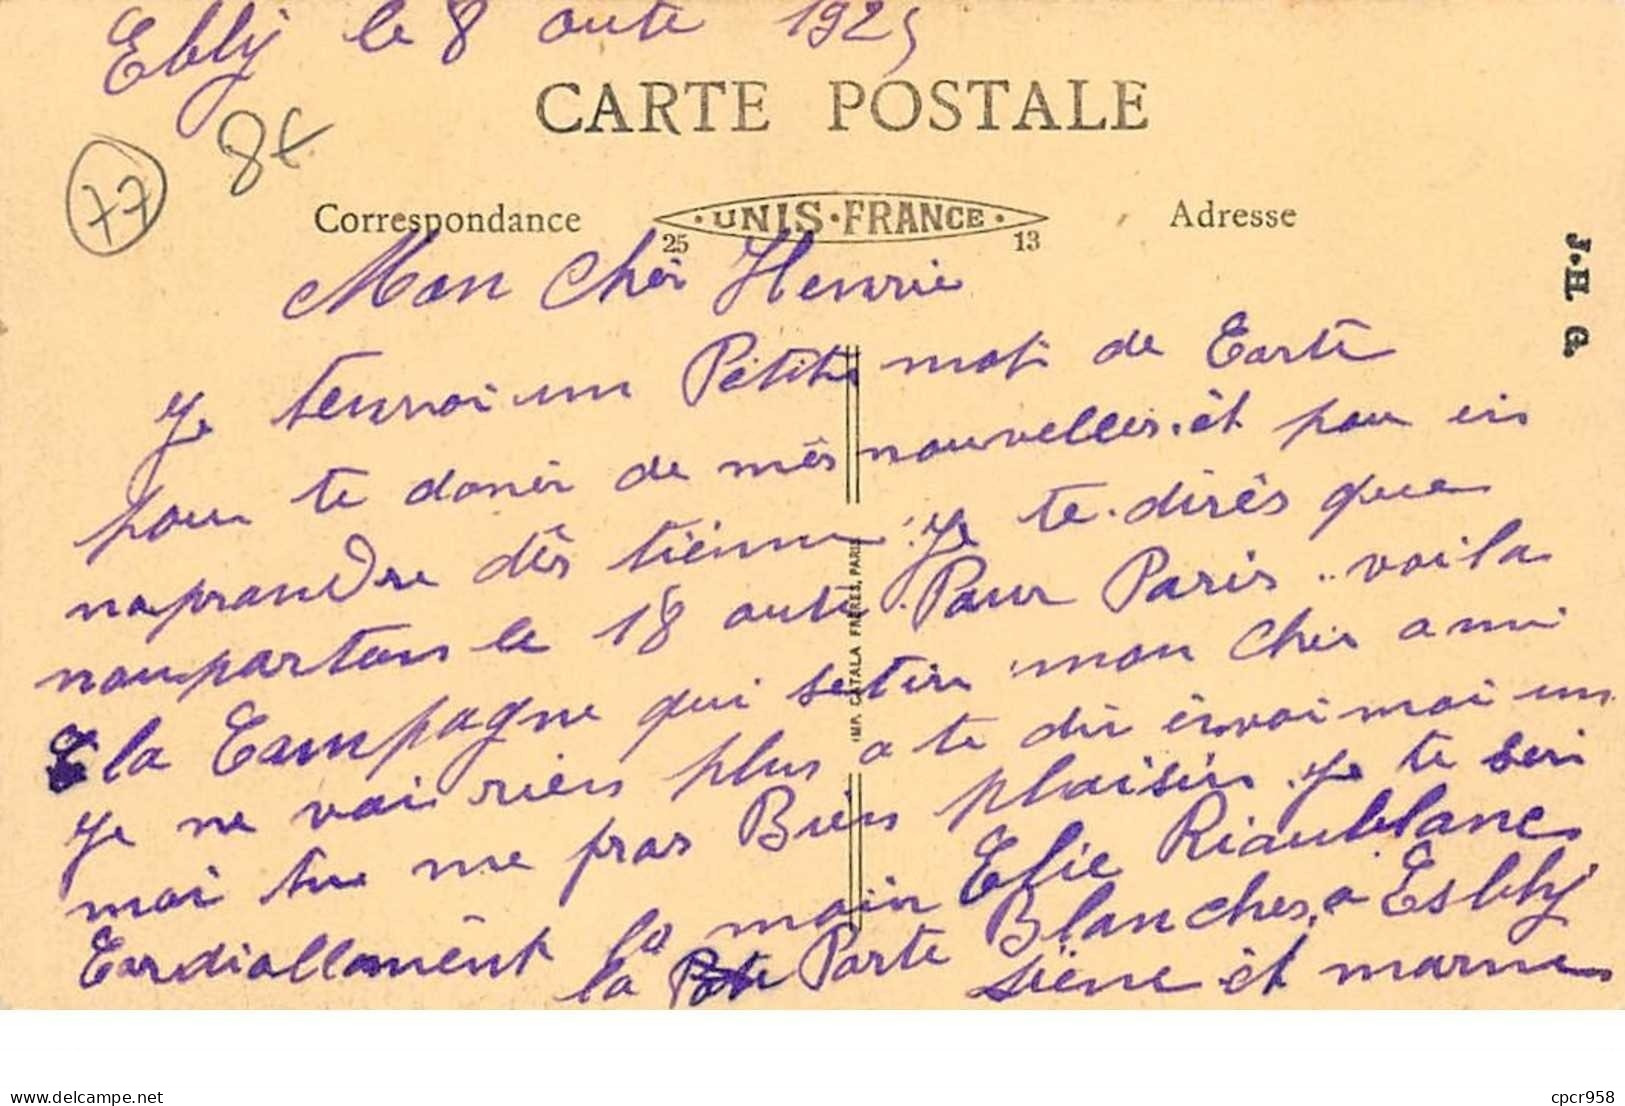 Ebly le 8 oute 1925
CARTE POSTALE
77 8€
Correspondance
UNIS-FRANCE
25 13
Adresse
J.H G.
Mon Chér Henrie
Je tenvoi un Petite mot de Carte
pour te donér de mês nouvelles. èt pour
naprandre dês tienne. Je te dirês que
noupartons le 18 oute Pour Paris.. voila
la Campagne qui setire mon Cher ami
Je ne voai rien plus a te dir envoi moi un
moi tu me fras Bien plaisir. Je te seri
Cordiallement la main Elie Riaublanc
la Porte Blanches a Esbly
siene èt marne
IMP. CATALA FRERES, PARIS
cpcr958
https://www.delcampe.net